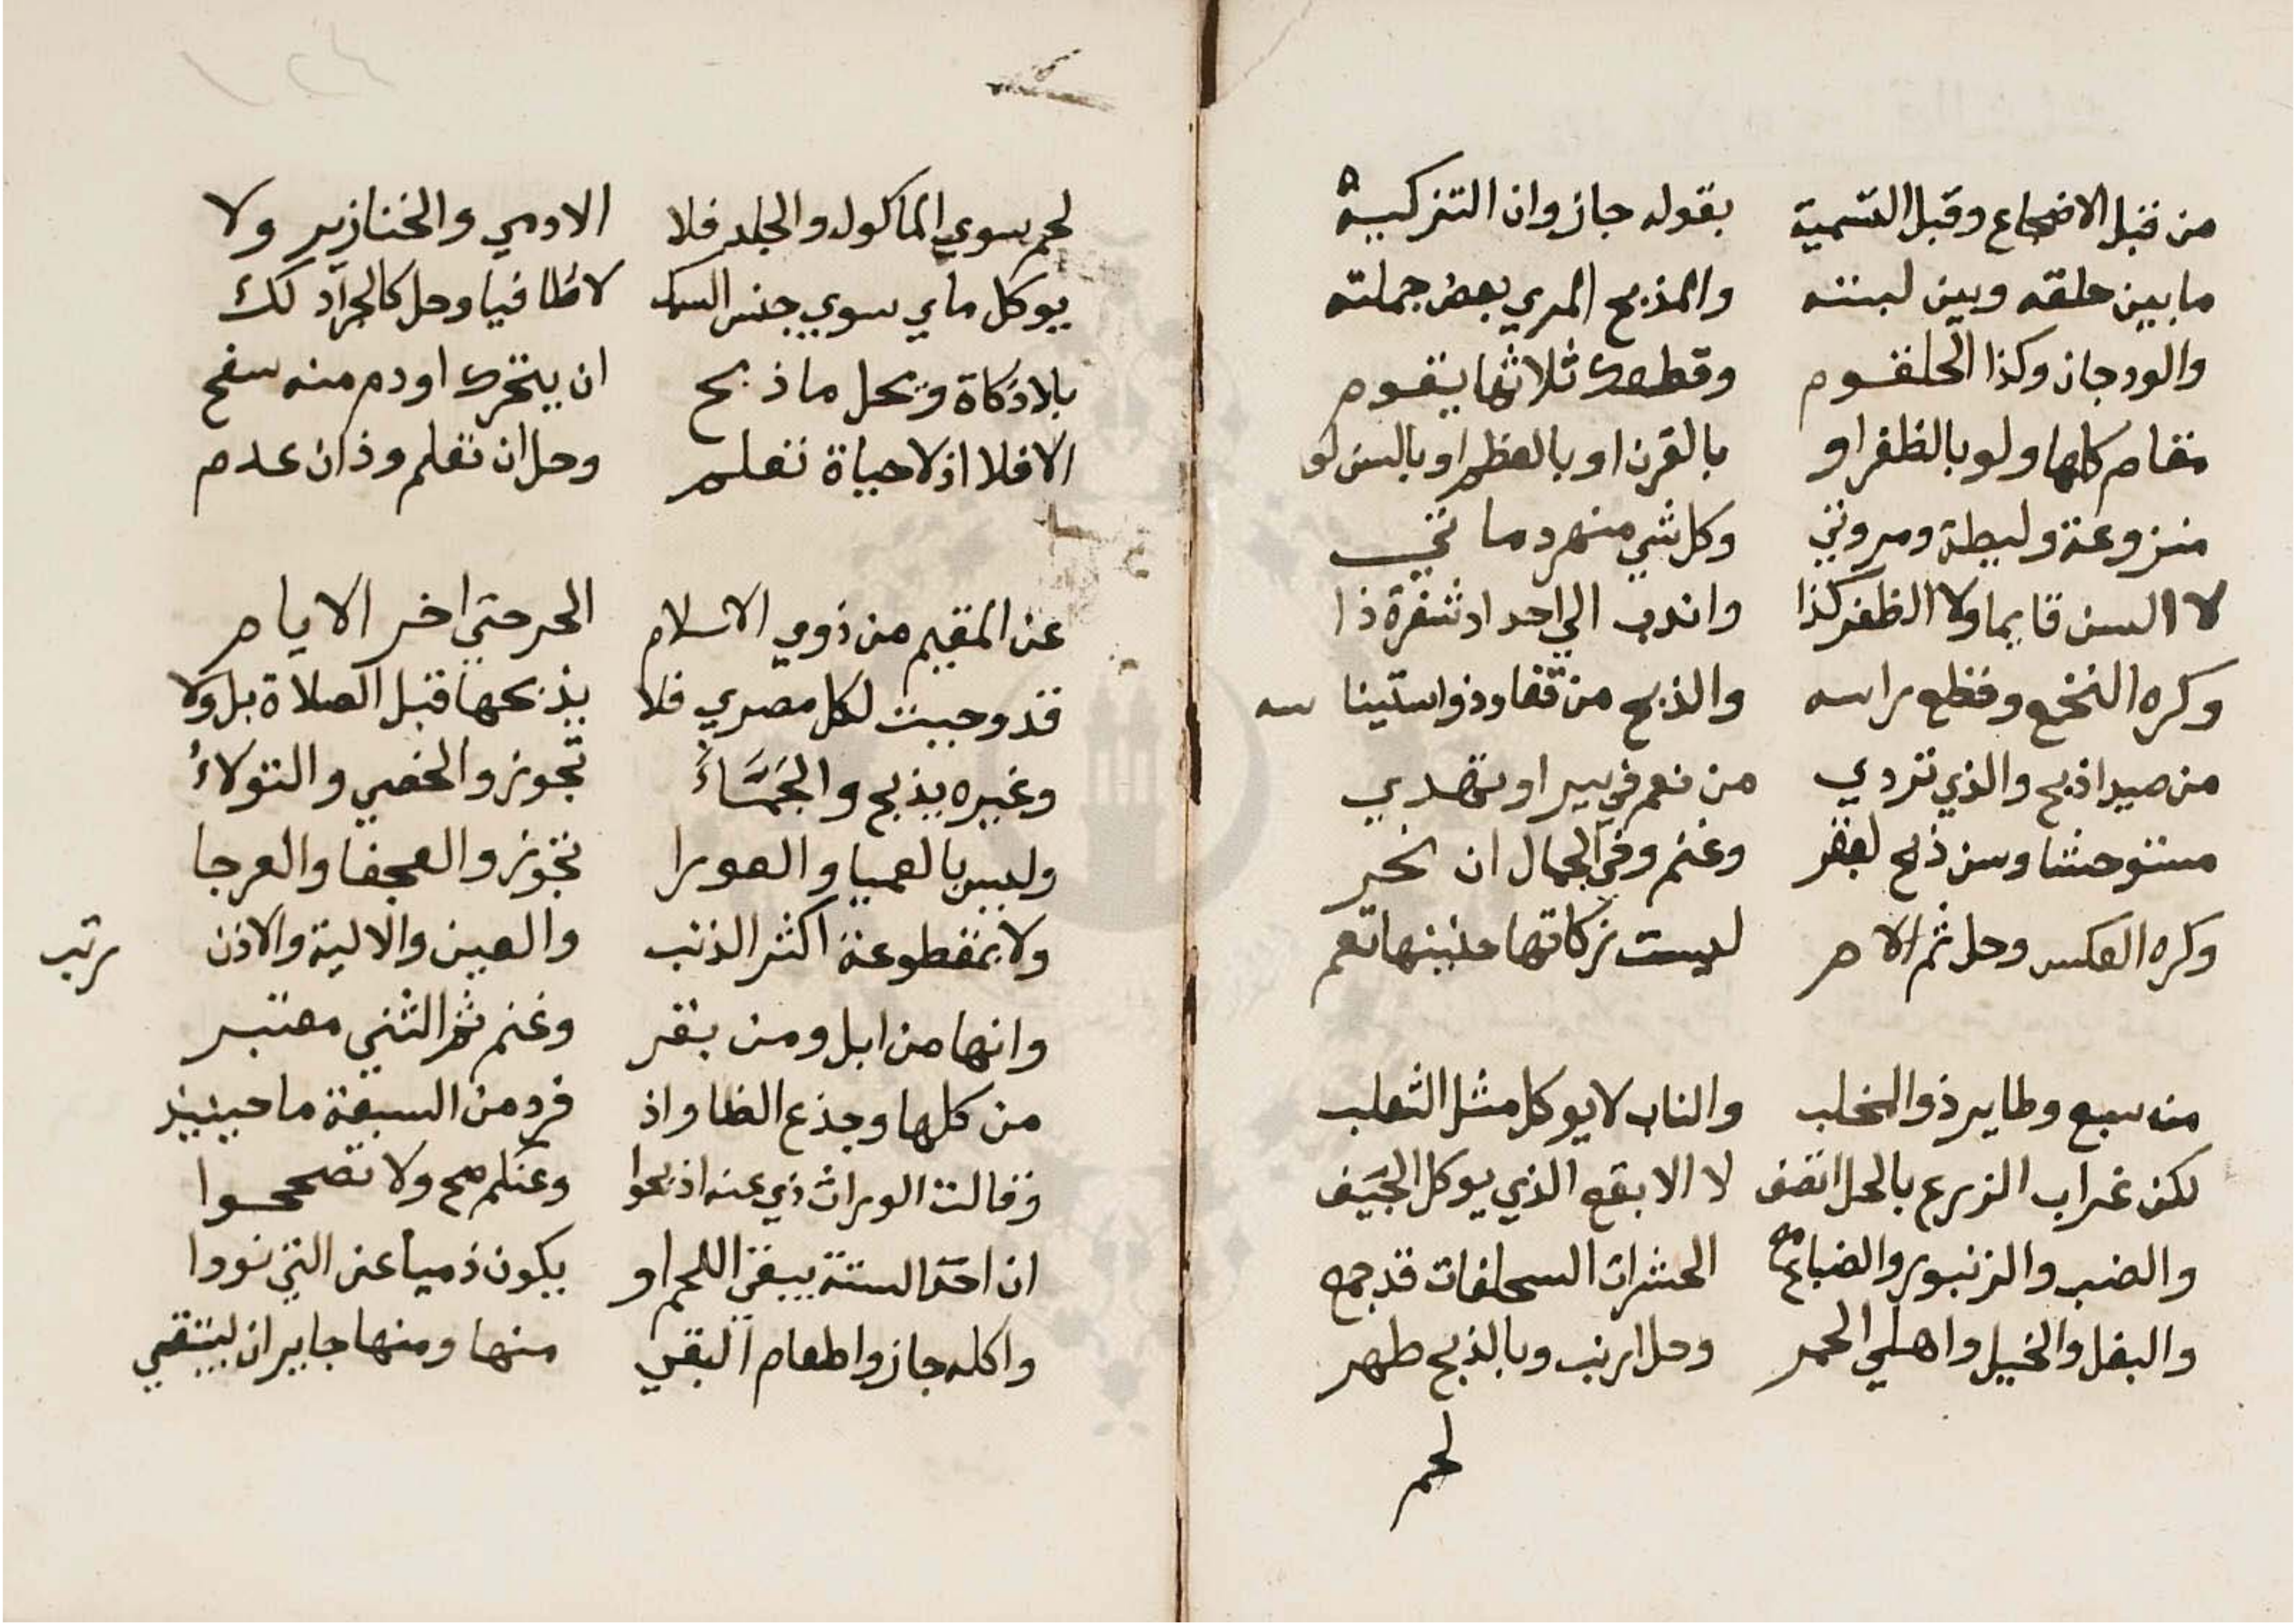 من قبل الاضجاع وقبل التسمية بقوله جاز وان التزكيه
ما بين حلقه وبين لبته والمذبح المري بعض جملته
والودجان وكذا الحلقوم وقطعك ثلاثها يقوم
مقام كلها ولو بالظفر او بالقرن او بالعظم او بالسن لو
منزوعة وليطة ومروتي وكل شي منهر دما تخي
لا السن قايما ولا الظفر كذا واندب الي احداد شفرة ذا
وكره النخع وقطع راسه والذبح من قفا وذو استينا سه
من صيد اذبح والذي تردي من نعم في بير او تصدي
متوحشا وسن ذبح لبقر وغنم وفي الجمال ان نحر
وكره العكس وحل ثم الام ليست زكاتها جنينها تعم
من سبع وطاير ذو المخلب والناب لا يوكل مثل الثعلب
لكن غراب الزرع بالحل اتصف لا الابقع الذي يوكل الجيف
والضب والزنبور والضباع مع الحشرات السحلفات قد جمع
والبغل والخيل واهلي الحمر وحل ارنب وبالذبح طهر
لحم
لحم سوي الماكول والجلد فلا الادمي والخنازير ولا
يوكل ماي سوي جنس السمك لا طافيا وحل كالجراد لك
بلا ذكاة ويحل ما ذبح ان يتحرك او دم منه سفح
الا فلا اذ لا حياة تعلم وحل ان تعلم وذان عدم
عن المقيم من ذوي الاسلام الحر حتي اخر الايام
قد وجبت لكل مصري فلا يذبحها قبل الصلاة بل ولا
وغيره يذبح والجماء تجوز والخصي والتولاء
وليس بالعميا والعورا تجوز والعجفا والعرجا
ولا بمقطوعة اكثر الذنب والعين والالية والاذن رتب
وانها من ابل ومن بقر وغنم ثم الثني معتبر
من كلها وجذع الضا واذ فرد من السبعة ما حينيذ
وقالت الوراث ذي عنه اذبحوا وعنكم صح ولا تصححوا
ان احد الستة يبغي اللحم او يكون ذميا عن التي نووا
واكله جاز واطعام البقي منها ومنها جاير ان ينتقي